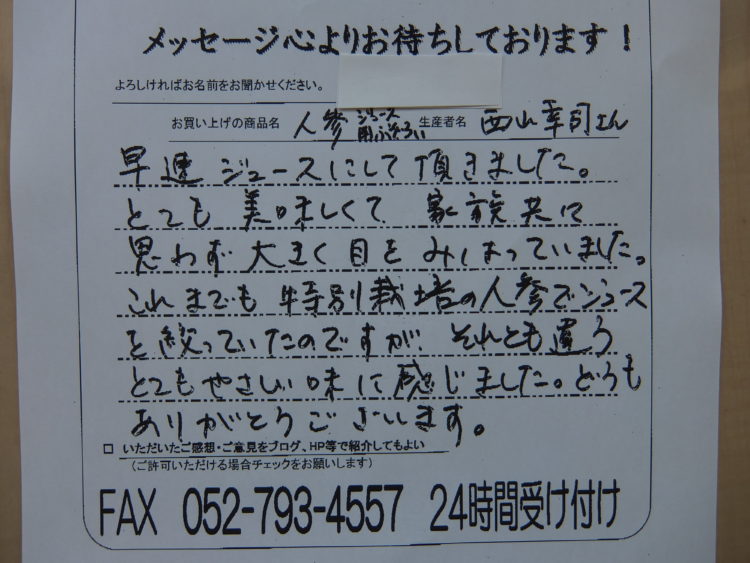 メッセージ心よりお待ちしております！
よろしければお名前をお聞かせください。
お買い上げの商品名 人参ジュース用ふぞろい 生産者名 西山幸司さん
早速ジュースにして頂きました。
とても美味しくて 家族共に
思わず大きく目をみはっていました。
これまでも特別栽培の人参でジュース
を絞っていたのですが、それとも違う
とてもやさしい味に感じました。どうも
ありがとうございます。
□ いただいたご感想・ご意見をブログ、HP等で紹介してもよい
（ご許可いただける場合チェックをお願いします）
FAX 052-793-4557 24時間受け付け